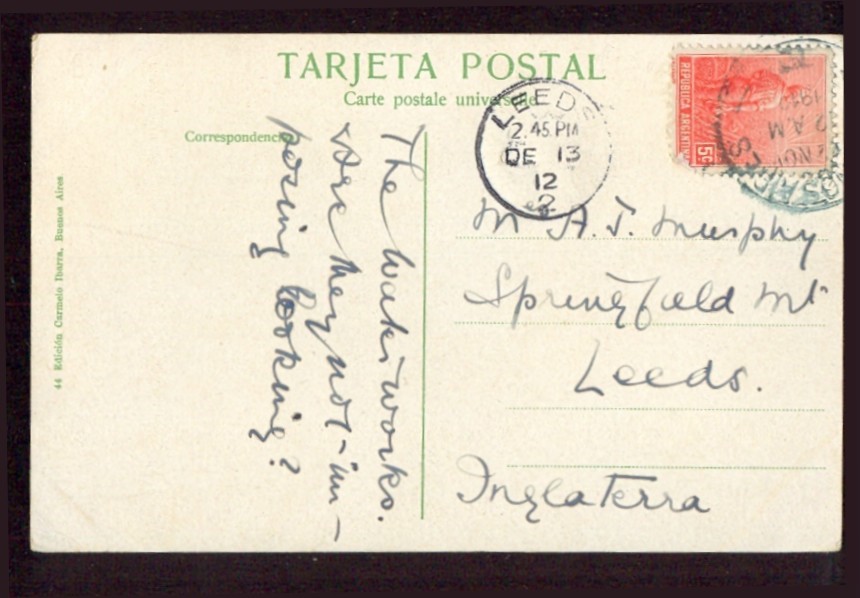 TARJETA POSTAL
Carte postale universelle
Correspondencia
The Waterworks.
Are they not im-
posing looking?
LEEDS
2.45 PM
DE 13
12
M A.J. Murphy
Springfield Mt
Leeds.
Inglaterra
REPUBLICA ARGENTINA
5c
2 NOV
44 Edición Carmelo Ibarra, Buenos Aires